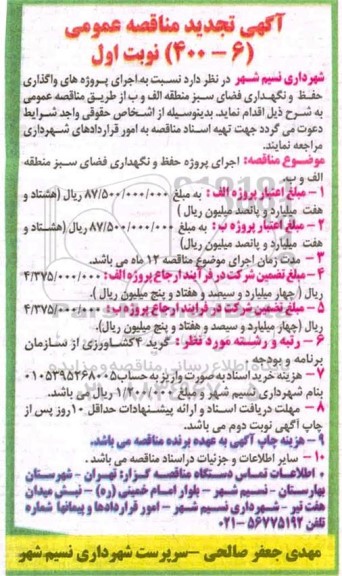 آگهی تجدید مناقصه عمومی
(۶ - ۴۰۰) نوبت اول
شهرداری نسیم شهر در نظر دارد نسبت به اجرای پروژه های واگذاری
حفظ و نگهداری فضای سبز منطقه الف و ب از طریق مناقصه عمومی
به شرح ذیل اقدام نماید. بدینوسیله از اشخاص حقوقی واجد شرایط
دعوت می گردد جهت تهیه اسناد مناقصه به امور قراردادهای شهرداری
مراجعه نمایند.
موضوع مناقصه: اجرای پروژه حفظ و نگهداری فضای سبز منطقه
الف و ب.
۱ - مبلغ اعتبار پروژه الف : به مبلغ ۸۷/۵۰۰/۰۰۰/۰۰۰ ریال (هشتاد و
هفت میلیارد و پانصد میلیون ریال)
۲ - مبلغ اعتبار پروژه ب : به مبلغ ۸۷/۵۰۰/۰۰۰/۰۰۰ ریال (هشتاد و
هفت میلیارد و پانصد میلیون ریال)
۳ - مدت زمان اجرای موضوع مناقصه ۱۲ ماه می باشد.
۴ - مبلغ تضمین شرکت در فرآیند ارجاع پروژه الف : ۴/۳۷۵/۰۰۰/۰۰۰
ریال (چهار میلیارد و سیصد و هفتاد و پنج میلیون ریال ).
۵ - مبلغ تضمین شرکت در فرایند ارجاع پروژه ب : ۴/۳۷۵/۰۰۰/۰۰۰
ریال (چهار میلیارد و سیصد و هفتاد و پنج میلیون ریال).
۶ - رتبه و رشته مورد نظر : گرید ۴ کشاورزی از سازمان
برنامه و بودجه
۷ - هزینه خرید اسناد به صورت واریز به حساب ۰۱۰۵۳۹۵۳۶۸۰۰۵
بنام شهرداری نسیم شهر و مبلغ ۱/۲۰۰/۰۰۰ ریال می باشد.
۸ - مهلت دریافت اسناد و ارائه پیشنهادات حداقل ۱۰ روز پس از
چاپ آگهی نوبت دوم می باشد.
۹ - هزینه چاپ آگهی به عهده برنده مناقصه می باشد.
۱۰ - سایر اطلاعات و جزئیات در اسناد مناقصه می باشد .
• اطلاعات تماس دستگاه مناقصه گزار: تهران - شهرستان
بهارستان - نسیم شهر - بلوار امام خمینی (ره) - نبش میدان
هفت تیر - شهرداری نسیم شهر - امور قراردادها و پیمانها شماره
تلفن ۵۶۷۷۵۱۹۲-۰۲۱
مهدی جعفر صالحی - سرپرست شهرداری نسیم شهر